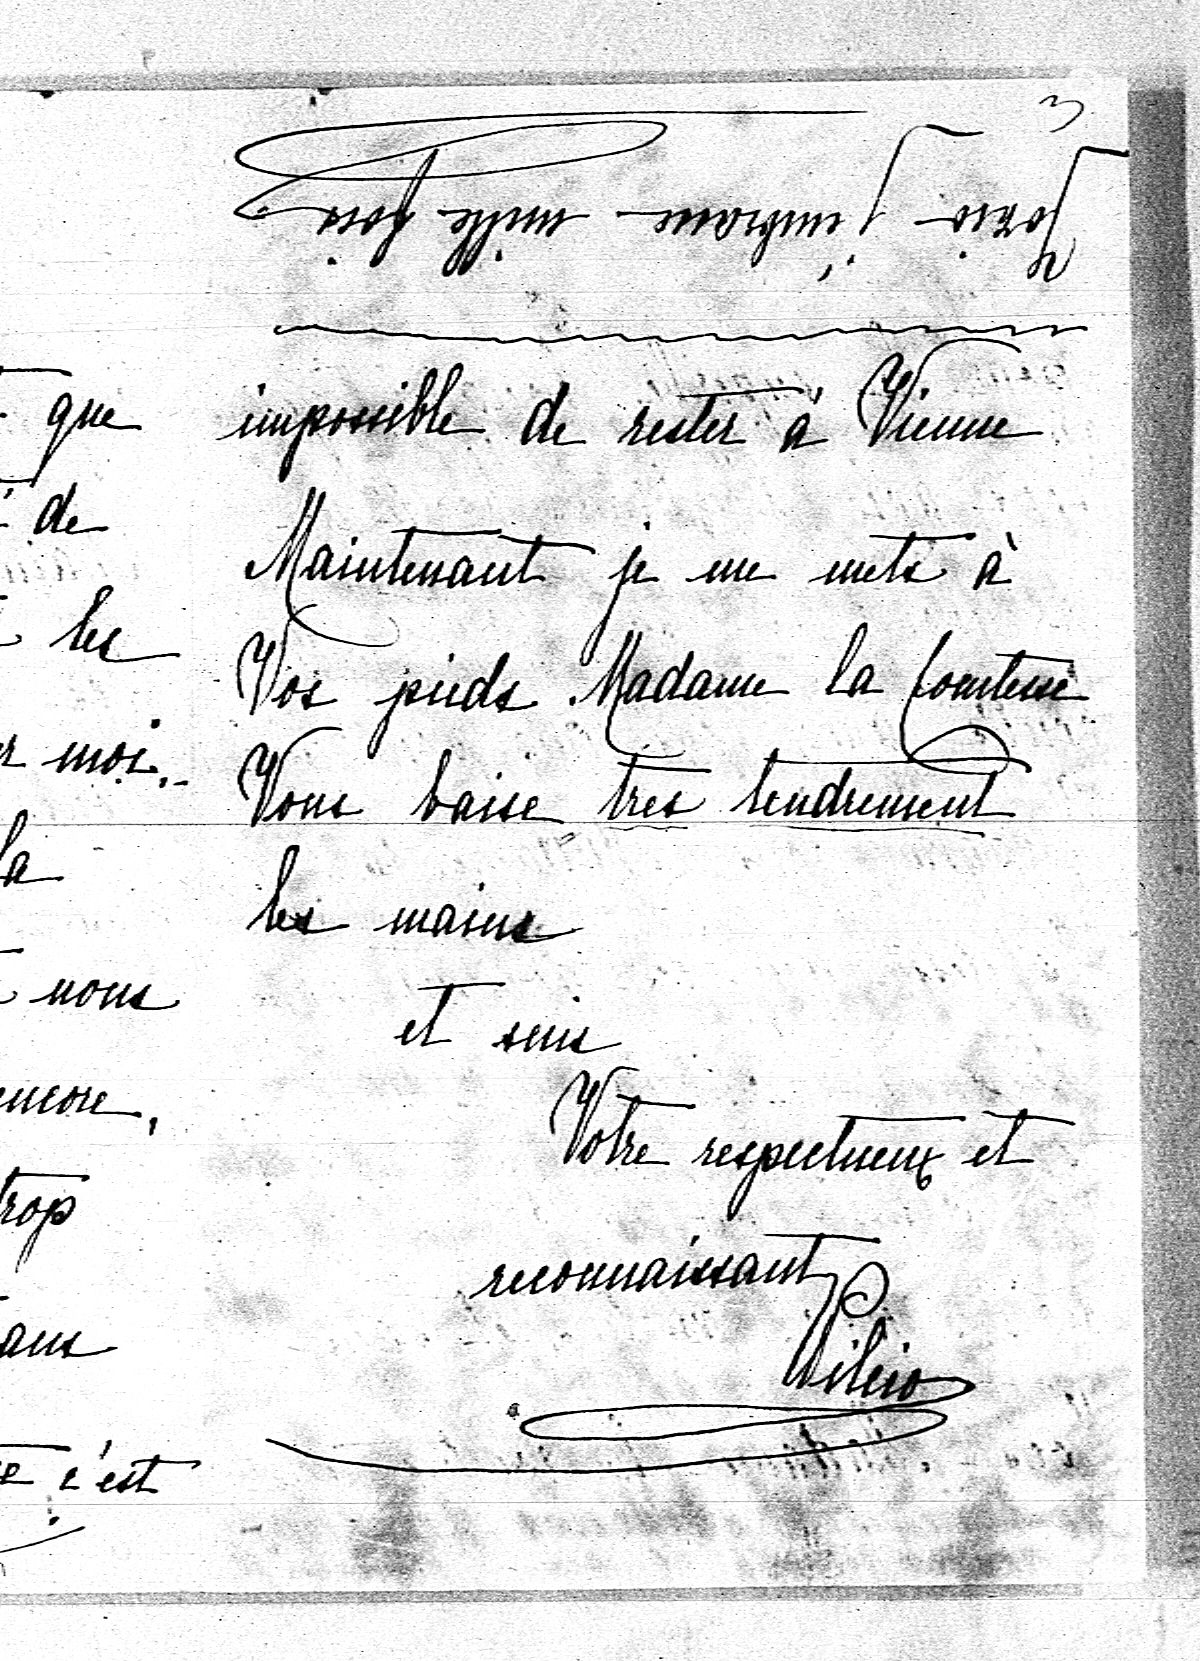 3
Jozio j'embrasse mille fois
impossible de rester à Vienne
Maintenant je me mets à
Vos pieds Madame la Comtesse
Vous baise très tendrement
les mains
et suis
Votre respectueux et
reconnaissant
que
de
les
moi.
la
nous
encore,
trop
c'est